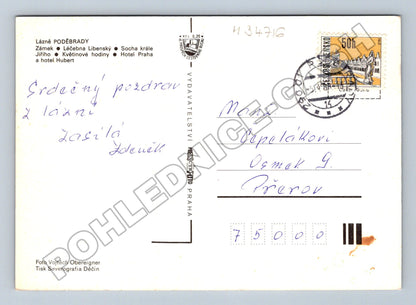 Lázně PODĚBRADY
Zámek • Léčebna Libenský • Socha krále
Jiřího • Květinové hodiny • Hotel Praha
a hotel Hubert
434716
50h
Srdečný pozdrav
z lázní
Zasílá
Zdeněk
VYDAVATELSTVÍ
PRAHA
Čepelákovi
Osmek 9.
Přerov
75000
Foto Vojtěch Obereigner
Tisk Severografia Děčín
POHLEDNICE